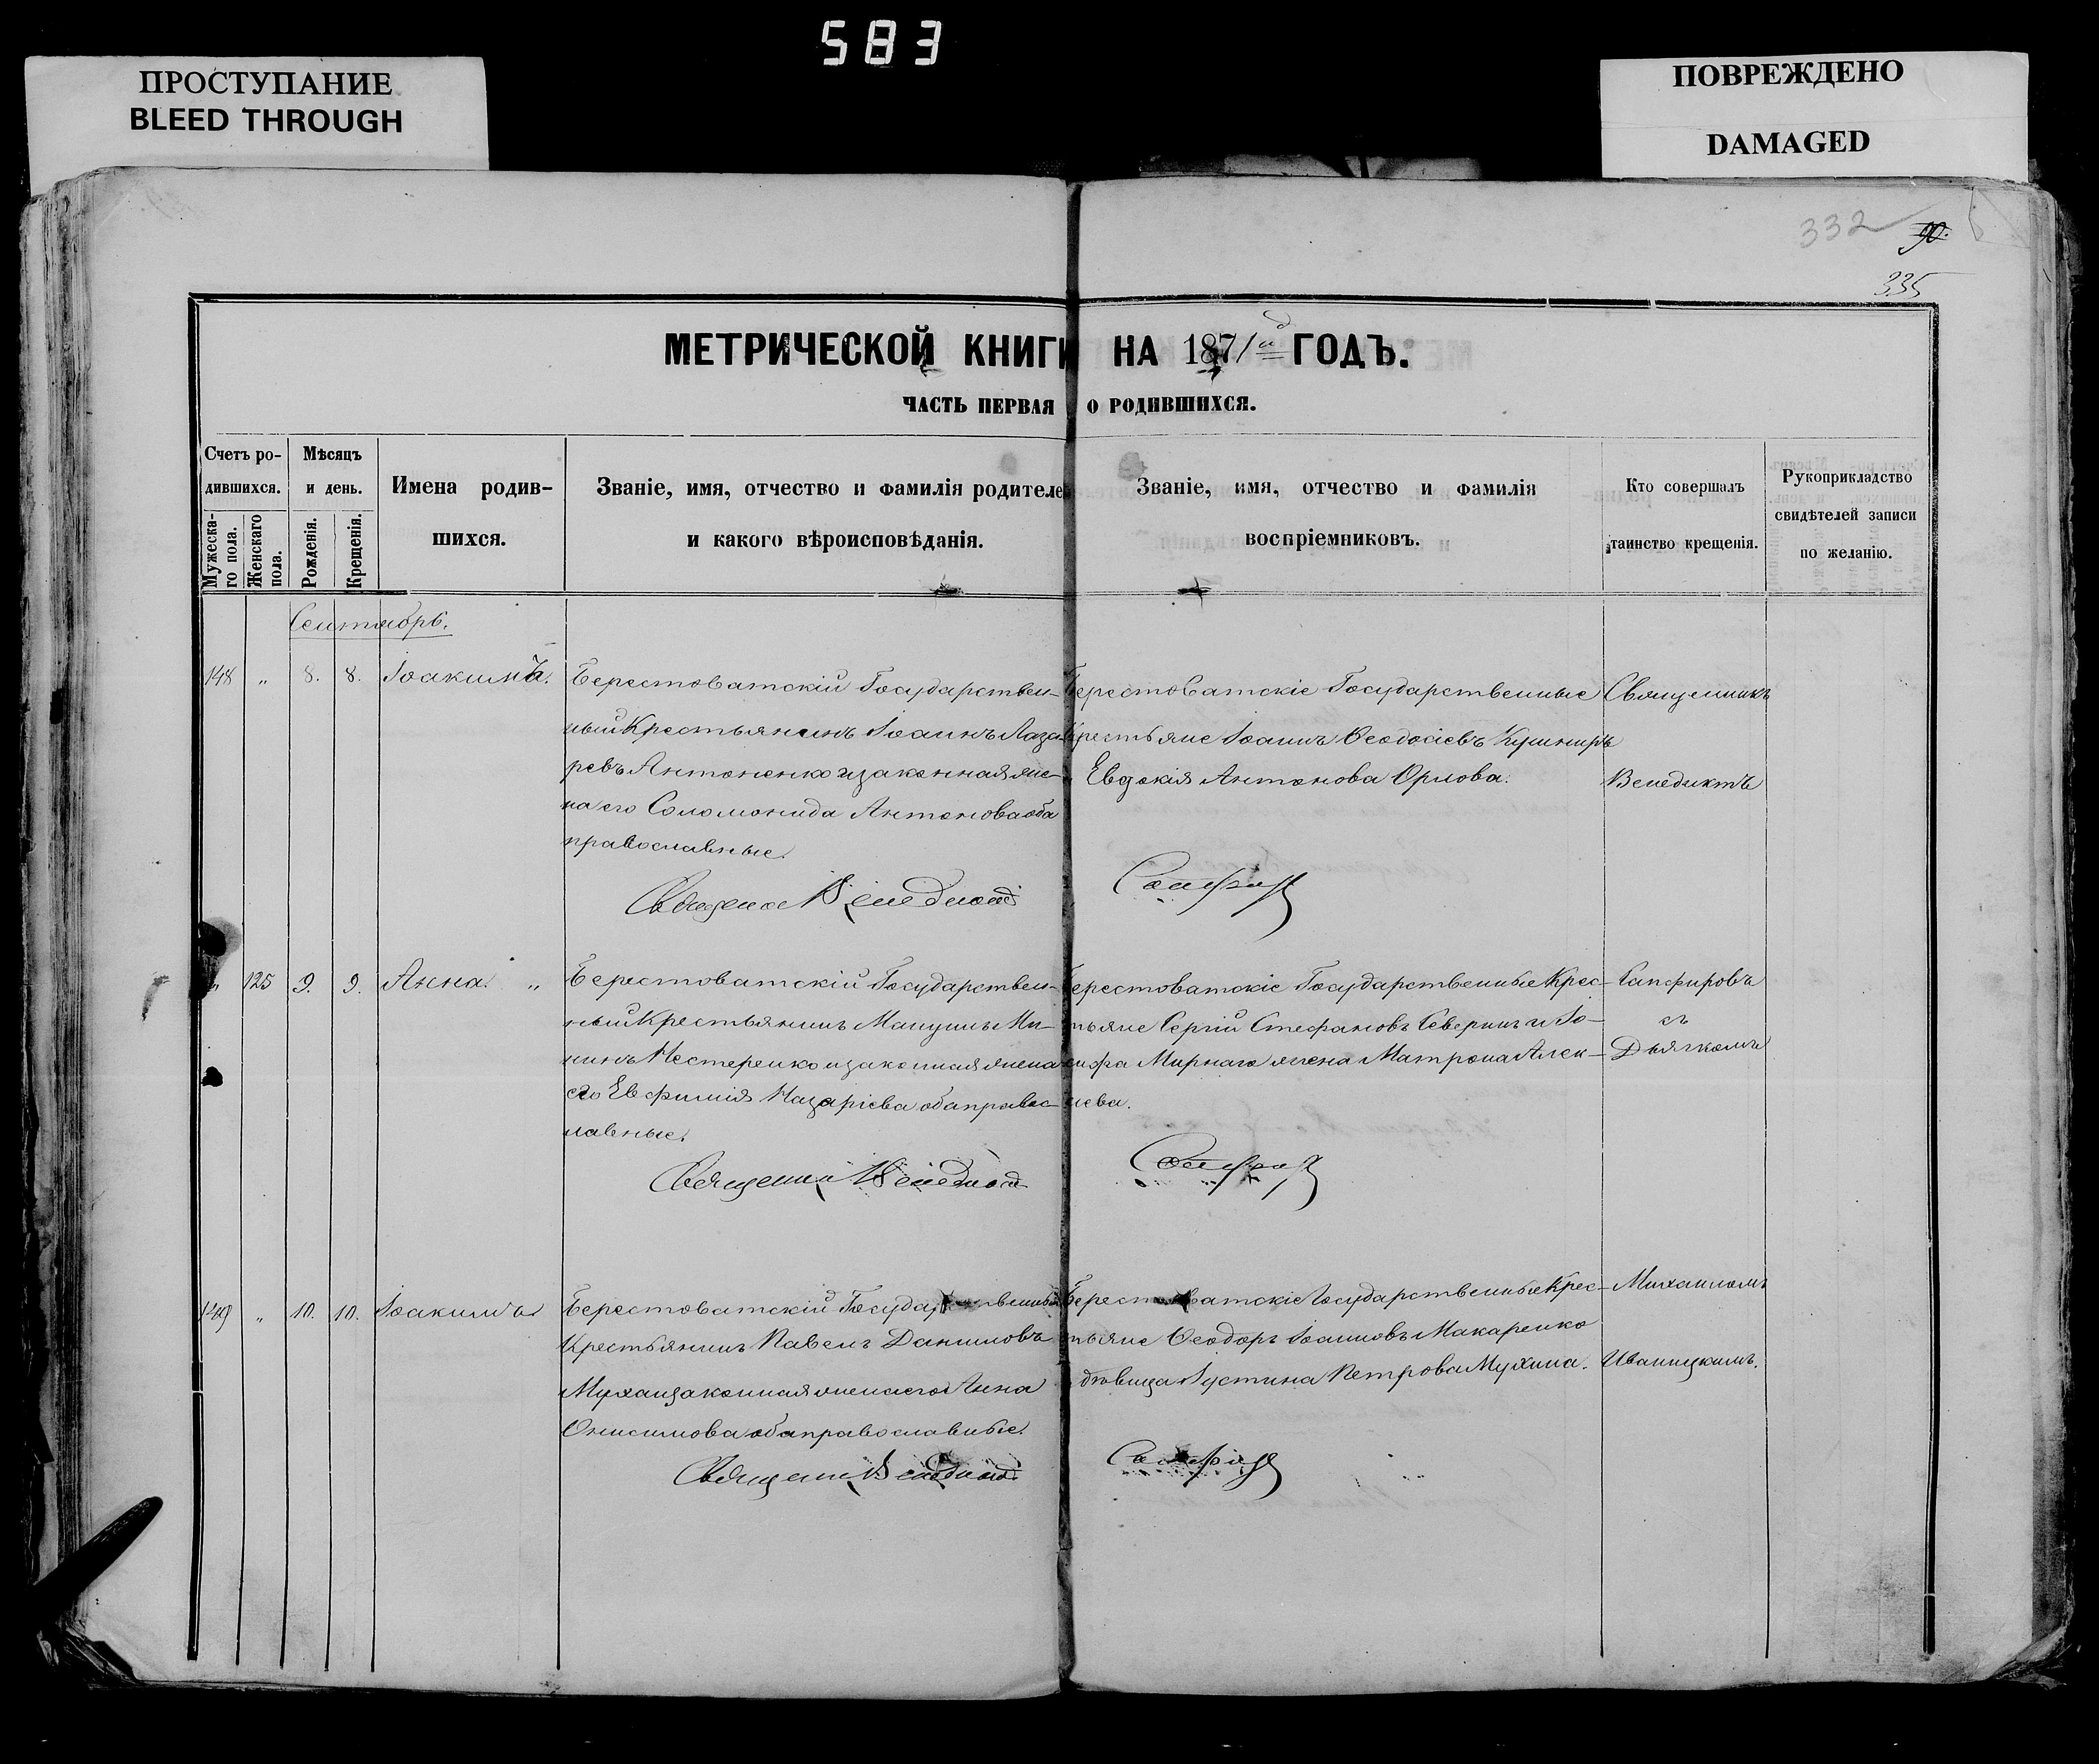 583
ПРОСТУПАНИЕ
BLEED THROUGH
ПОВРЕЖДЕНО
DAMAGED
332
90.
335
МЕТРИЧЕСКОЙ КНИГИ НА 1871й ГОДЪ.
ЧАСТЬ ПЕРВАЯ О РОДИВШИХСЯ.
Счетъ ро-
дившихся.
Мужеска-
го пола.
Женскаго
пола.
Мѣсяцъ
и день.
Рожденія.
Крещенія.
Имена родив-
шихся.
Званіе, имя, отчество и фамилія родителе
и какого вѣроисповѣданія.
Званіе, имя, отчество и фамилія
воспріемниковъ.
Кто совершалъ
таинство крещенія.
Рукоприкладство
свидѣтелей записи
по желанію.
Сентябрь.
148 „ 8. 8. Іоакимъ.
Берестоватскій Государствен-
ный Крестьянинъ Іоаннъ Лаза-
ревъ Антоненко и законная же-
на его Соломонида Антонова оба
православные.
Берестоватскіе Государственные
Крестьяне Іоаннъ Ѳеодосіевъ Кушниръ
Евдокія Антонова Орлова.
Священникъ
Венедиктъ
Священ Венедиктъ Сапфир
„ 125 9. 9. Анна. „
Берестоватскій Государствен-
ный Крестьянинъ Ми-
нинъ Нестеренко и законная жена
его Евфимія Назаріева оба правос-
лавные.
Берестоватскіе Государственные Крес-
тьяне Сергій Стефановъ Северинъ и Іо-
сифа Мирнаго жена Матрона Алек-
сіева.
Сапфировъ
съ
Дьячкомъ
Священни Венедиктъ Сапфир
149 „ 10. 10. Іоакимъ
Берестоватскій Государственный
Крестьянинъ Павелъ Даниловъ
Муха и законная жена его Анна
Онисимова оба православные.
Берестоватскіе Государственные Крес-
тьяне Ѳеодоръ Іоанновъ Макаренко
дѣвица Іустина Петрова Мухина.
Михаиломъ
Иваницкимъ.
Священни Венедиктъ Сапфир